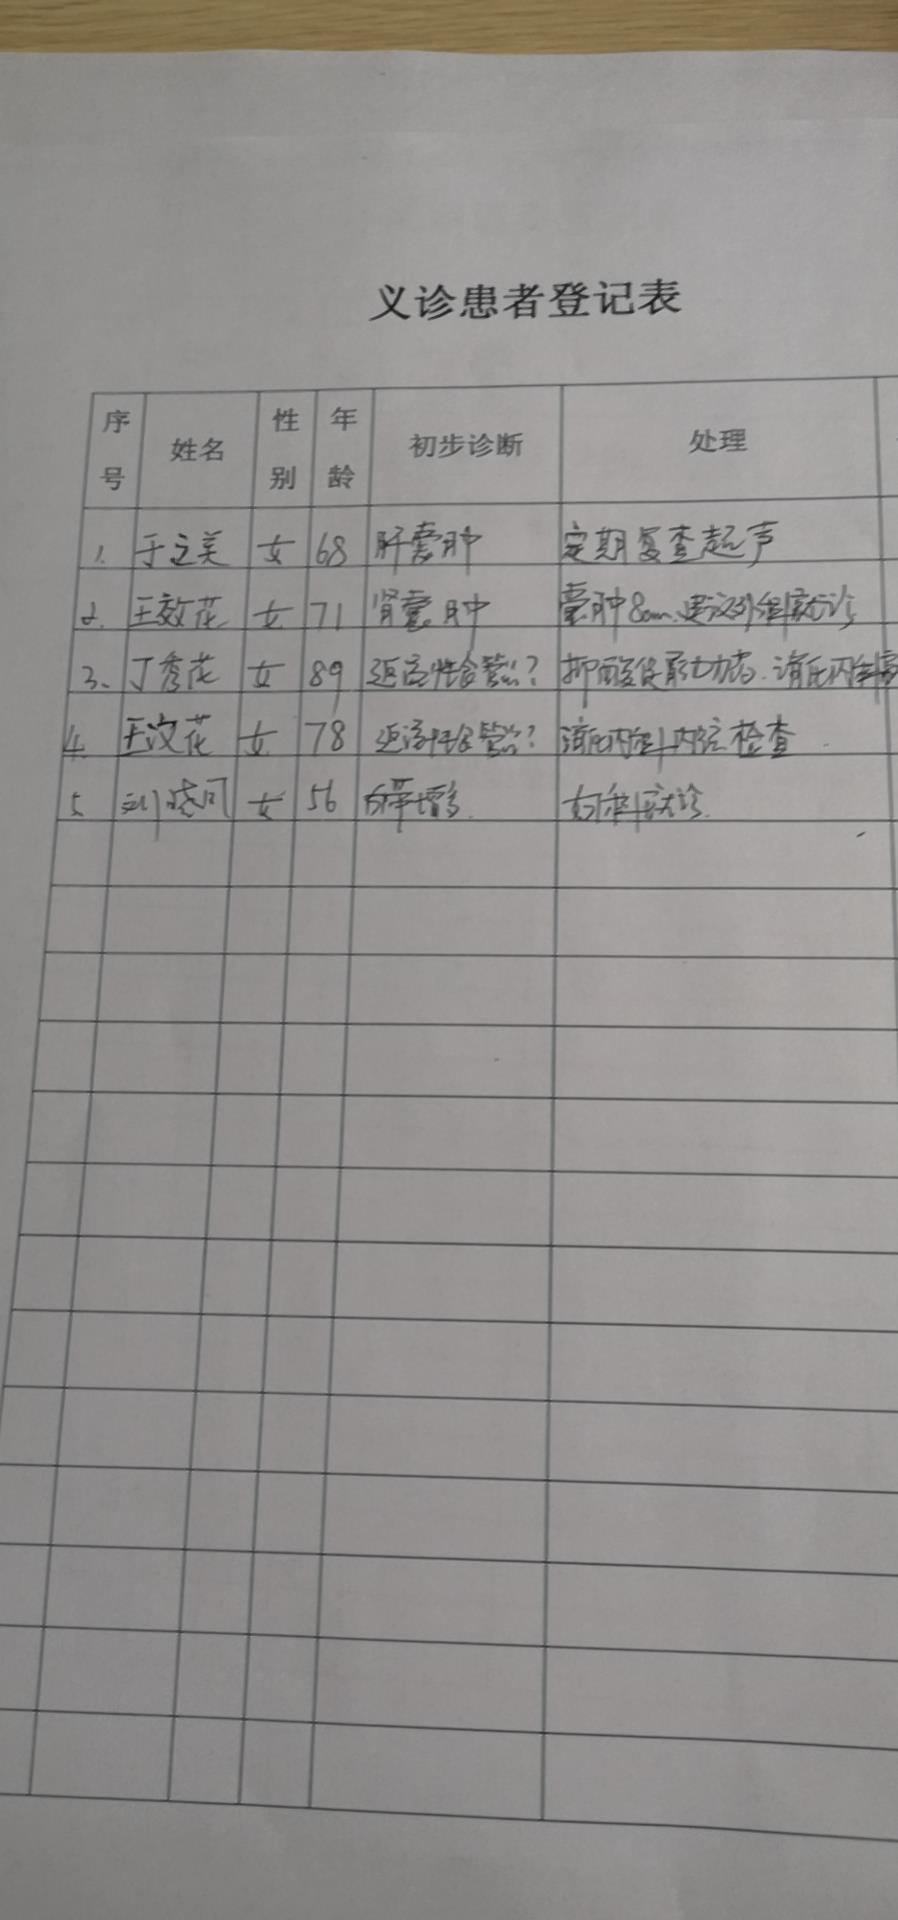 义诊患者登记表
序号 姓名 性别 年龄 初步诊断 处理
1. 于立美 女 68 肝囊肿 定期复查超声
2. 王效花 女 71 肾囊肿 囊肿8cm、建议外科就诊
3、 丁秀花 女 89 返流性食管炎? 抑酸促动力药.消化内科
4. 王汶花 女 78 返流性食管炎? 消化内科内镜检查.
5 刘 女 56 白带增多. 妇科就诊.